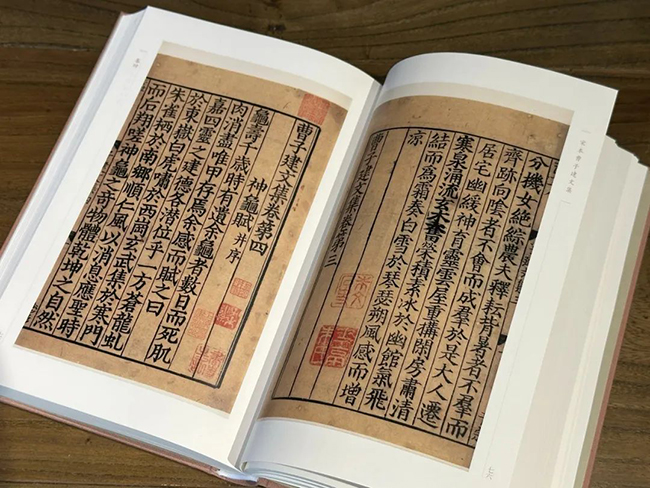 宋本曹子建文集
分機女絕綜農夫釋耘背暑者不羣而
齊跡向陰者不會而成羣於是大人遷
居宅幽綏神育靈雲屋重構閒房肅清
寒泉涓流玄木奮榮積素冰於幽館氣飛
結而為霜奏白雲於琴瑟朔風感而增
涼
曹子建文集卷第三
七六
曹子建文集卷第四
神龜賦 并序
龜壽千歲時有遺余龜者數日而死肌
肉消盡唯甲存焉余感而賦之曰
嘉四靈之建德各潛位乎一方蒼龍虬
於東嶽白虎嘯於西岡玄武集於寒門
朱雀栖於南鄉順仁風以消息應聖時
而后翔嗟神龜之奇物體乾坤之自然
卷四